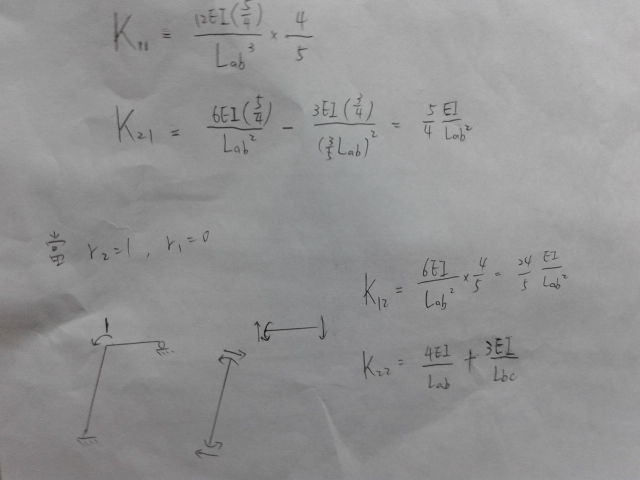 K₁₁ = 12EI(5/4)/Lab³ × 4/5
K₂₁ = 6EI(5/4)/Lab² − 3EI(3/4)/(3/5 Lab)² = 5/4 EI/Lab²
當 r₂=1, r₁=0
K₁₂ = 6EI/Lab² × 4/5 = 24/5 EI/Lab²
1
K₂₂ = 4EI/Lab + 3EI/Lbc